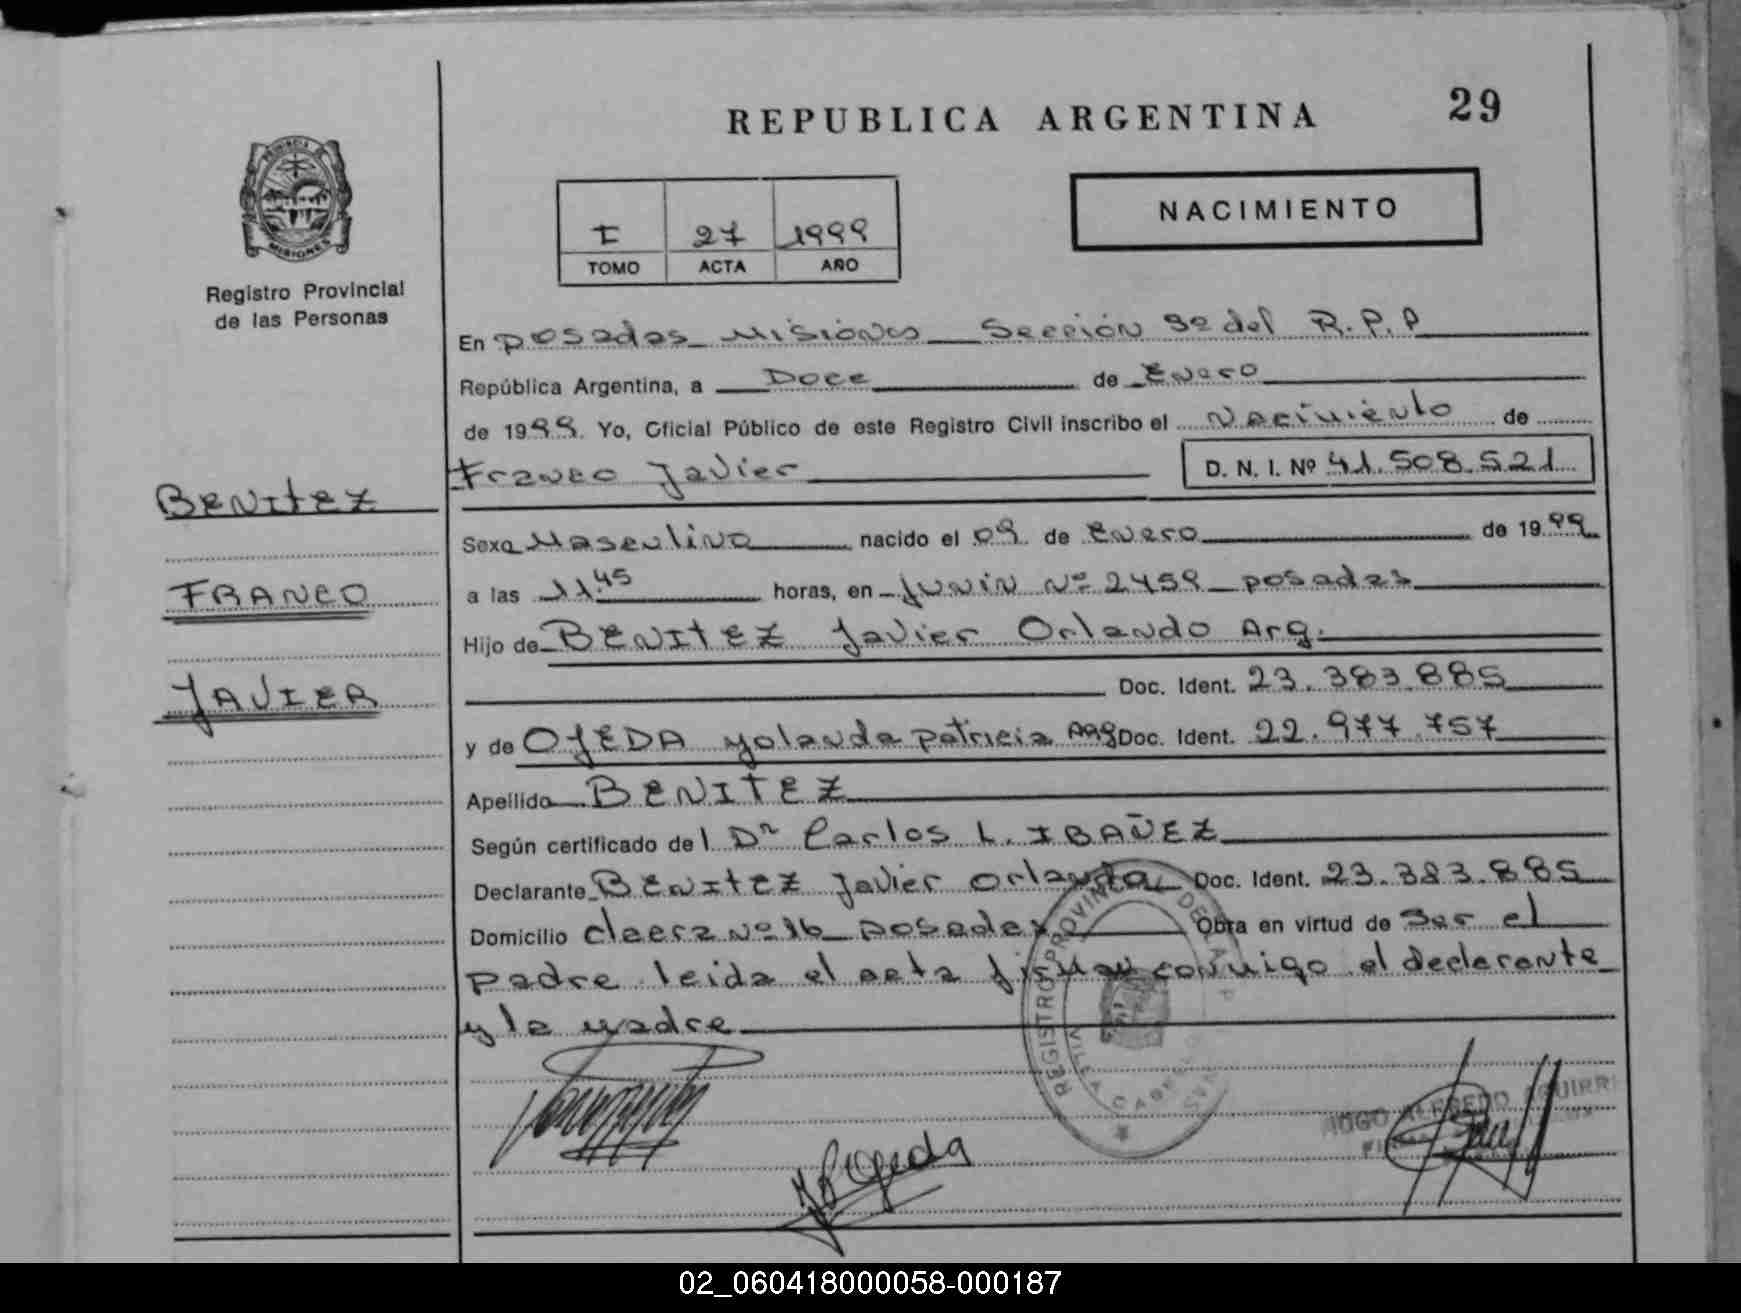 REPUBLICA ARGENTINA
29
PROVINCIA DE
MISIONES
Registro Provincial
de las Personas
I 27 1999
TOMO ACTA AÑO
NACIMIENTO
En Posadas Misiones Sección 9º del R.P.P
República Argentina, a Doce de Enero
de 1999. Yo, Oficial Público de este Registro Civil inscribo el Nacimiento de
Franco Javier D. N. I. Nº 41.508.521
BENITEZ
FRANCO
JAVIER
Sexo Masculino nacido el 09 de Enero de 1999
a las 11.45 horas, en Junin Nº 2459 posadas
Hijo de BENITEZ Javier Orlando Arg.
Doc. Ident. 23.383.885
y de OJEDA Yolanda Patricia Arg Doc. Ident. 22.977.757
Apellido BENITEZ
Según certificado del Dr Carlos L. IBAÑEZ
Declarante BENITEZ Javier Orlando Doc. Ident. 23.383.885
Domicilio Nº 16 posadas Obra en virtud de Ser el
padre leida el acta firman conmigo el declarante
y la madre
REGISTRO PROVINCIAL DE LAS P
VILLA CABELLO
Ojeda
HUGO ALFREDO AGUIRRE
02_060418000058-000187